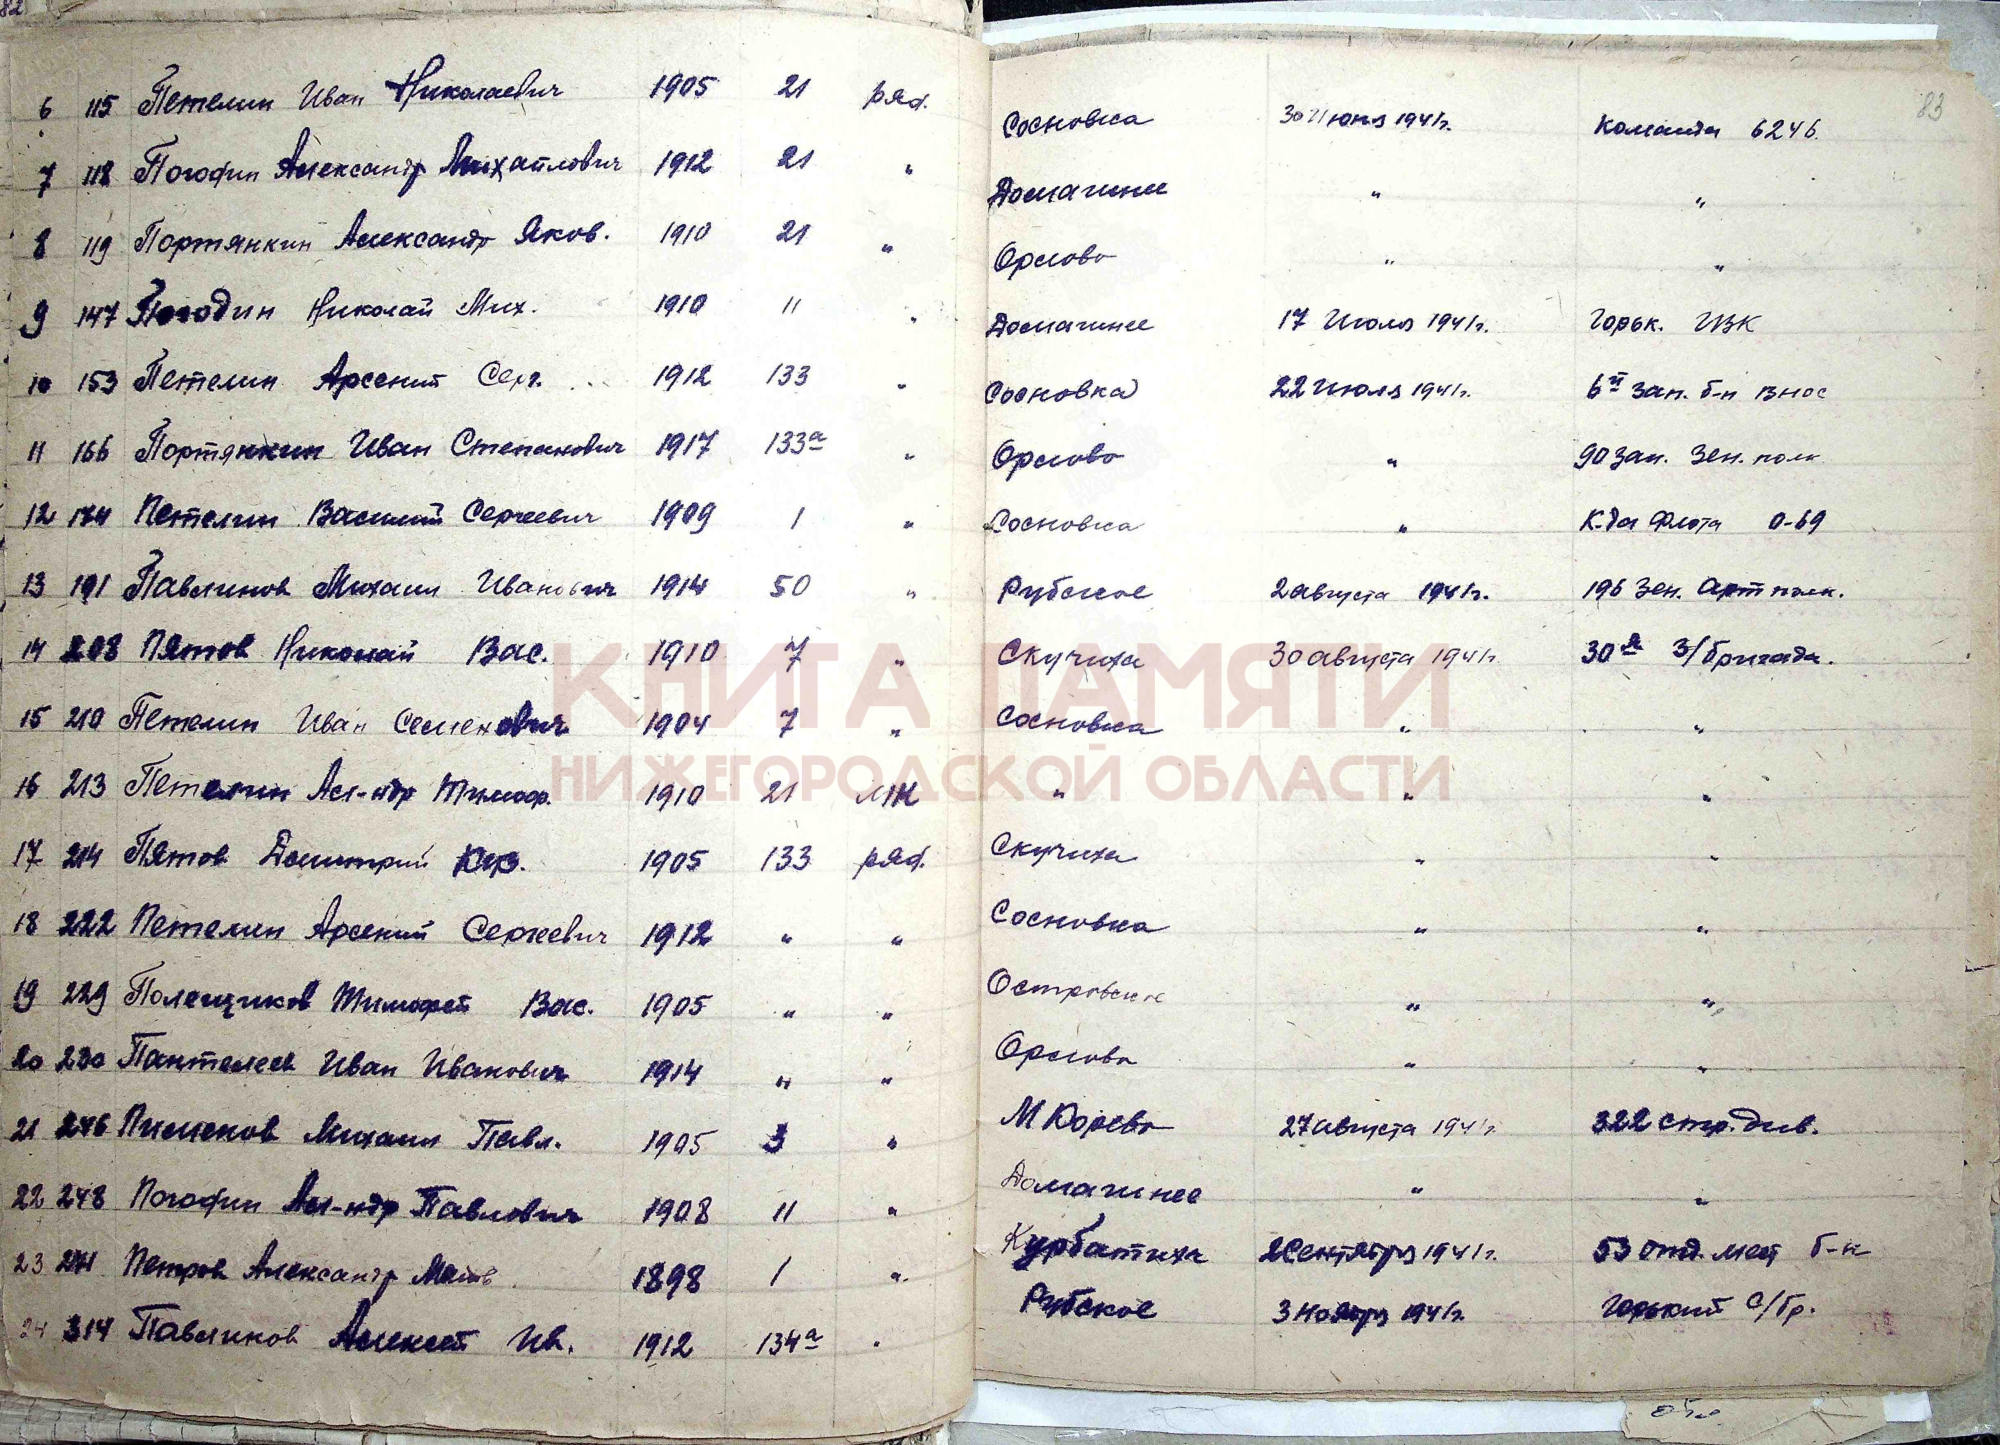 82
83
6 115 Петелин Иван Николаевич 1905 21 ряд. Сосновка 30 Июня 1941г. Команда 6246.
7 118 Погодин Александр Михайлович 1912 21 " Домашнее " "
8 119 Портянкин Александр Яков. 1910 21 " Орлово " "
9 147 Погодин Николай Мих. 1910 11 " Домашнее 17 Июля 1941г. Горьк. ИВК
10 153 Петелин Арсений Серг. 1912 133 " Сосновка 22 Июля 1941г. 6й зап. б-н ВНОС
11 166 Портянкин Иван Степанович 1917 133а " Орлово " 90 зап. Зен. полк
12 174 Петелин Василий Сергеевич 1909 1 " Сосновка " К-да Флота 0-69
13 191 Павлинов Михаил Иванович 1914 50 " Рубское 2 августа 1941г. 196 Зен. Арт полк.
14 208 Пятов Николай Вас. 1910 7 " Скучиха 30 августа 1941г. 30я З/бригада.
15 210 Петелин Иван Семенович 1904 7 " Сосновка " "
16 213 Петелин Ал-ндр Тимоф. 1910 21 " " "
17 214 Пятов Дмитрий Куз. 1905 133 ряд. Скучиха " "
18 222 Петелин Арсений Сергеевич 1912 " " Сосновка " "
19 229 Полещиков Тимофей Вас. 1905 " " Островское " "
20 230 Пантелеев Иван Иванович 1914 " " Орлово " "
21 246 Пименов Михаил Павл. 1905 3 " М Корево 27 августа 1941г. 322 стр. див.
22 248 Погодин Ал-ндр Павлович 1908 11 " Домашнее " "
23 Петров Александр Матв. 1898 1 " Курбатиха 2 Сентября 1941г. 53 отд. мест б-н
24 314 Павлинов Алексей Ив. 1912 134а " Рубское 3 Ноября 1941г. Горький с/бр.
КНИГА ПАМЯТИ
НИЖЕГОРОДСКОЙ ОБЛАСТИ